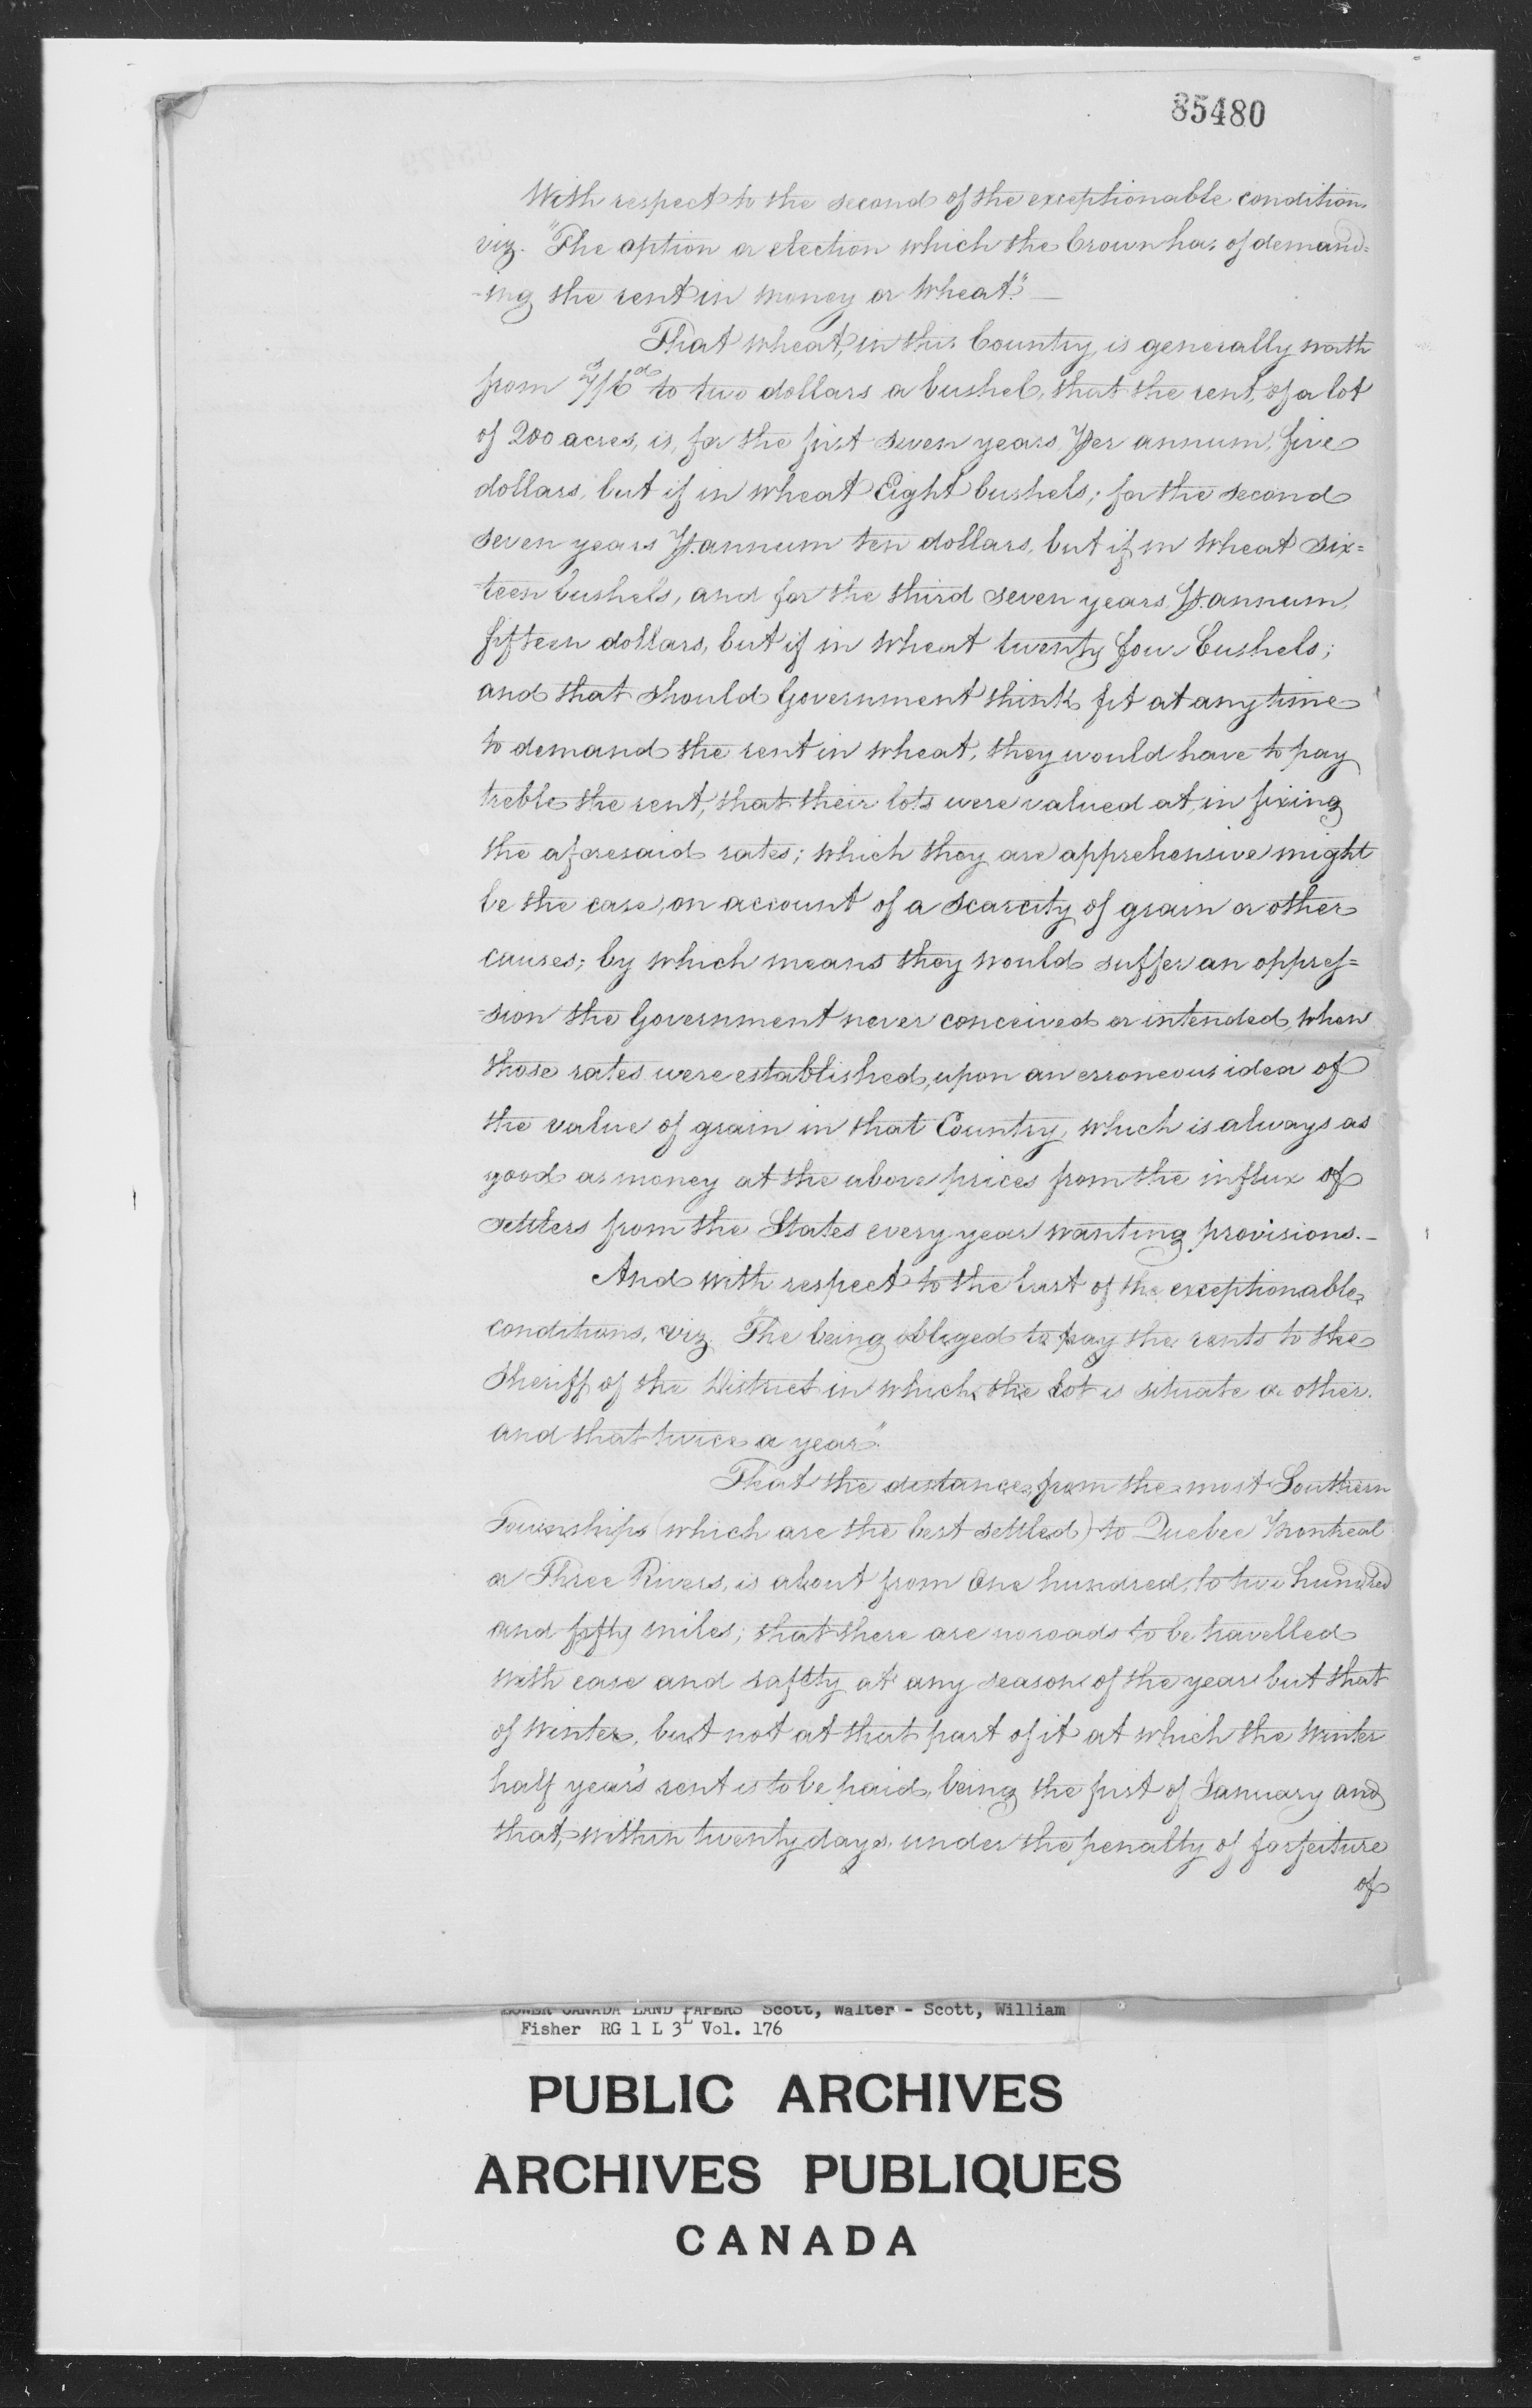 85480
With respect to the second of the exceptionable condition,
viz. "The option or election which the Crown has of demand=
-ing the rent in money or wheat." —
That wheat, in this Country, is generally worth
from 7/6d to two dollars a bushel, that the rent, of a lot
of 200 acres, is, for the first seven years Per annum, five
dollars, but if in wheat Eight bushels; for the second
seven years P. annum ten dollars, but if in wheat six=
-teen bushels, and for the third seven years, P. annum,
fifteen dollars, but if in wheat twenty four bushels;
and that should Government think fit at any time
to demand the rent in wheat, they would have to pay
treble the rent, that their lots were valued at, in fixing
the aforesaid rates; which they are apprehensive might
be the case, on account of a scarcity of grain or other
causes; by which means they would suffer an oppres=
-sion the Government never conceived or intended, when
those rates were established, upon an erroneous idea of
the value of grain in that Country, which is always as
good as money at the above prices from the influx of
settlers from the States every year wanting provisions. —
And with respect to the last of the exceptionable
conditions, viz. "The being obliged to pay the rents to the
Sheriff of the District in which the Lot is situate or other.
and that twice a year."
That the distance, from the most Southern
Townships (which are the best settled) to Quebec Montreal
or Three Rivers, is about from One hundred, to two hundred
and fifty miles; that there are no roads to be travelled
with ease and safety at any season of the year but that
of Winter, but not at that part of it at which the Winter
half year's rent is to be paid, being the first of January and
that, within twenty days, under the penalty of forfeiture
of
LOWER CANADA LAND PAPERS Scott, Walter - Scott, William
Fisher RG 1 L 3L Vol. 176
PUBLIC ARCHIVES
ARCHIVES PUBLIQUES
CANADA